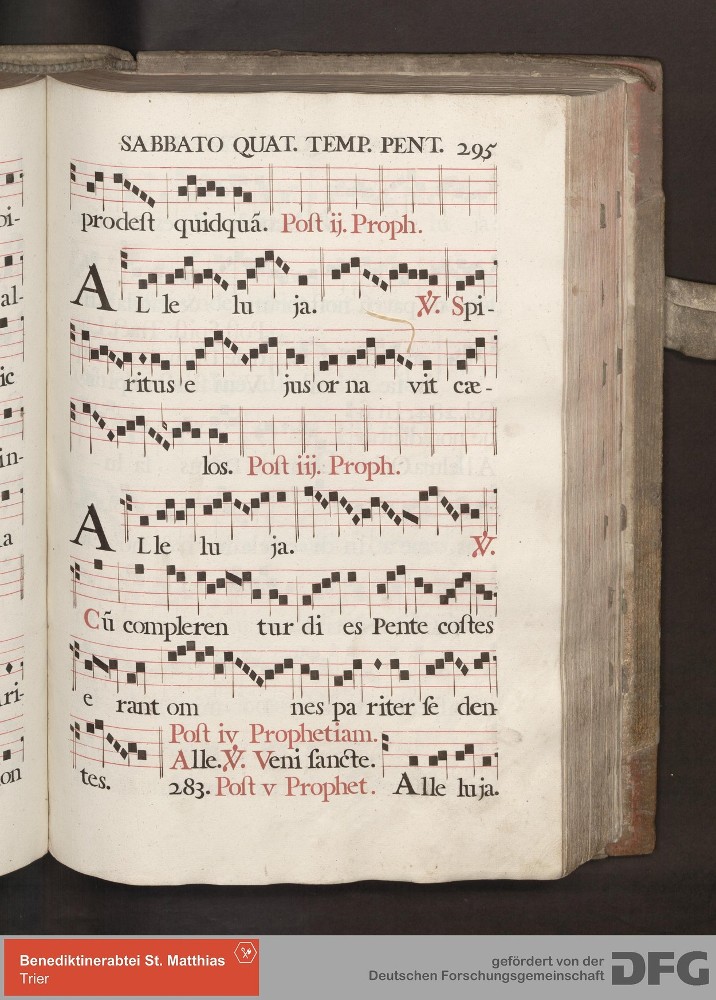 SABBATO QUAT. TEMP. PENT. 295
prodest quidquã. Post ij. Proph.
AL le lu ja. ℣. Spi-
ritus e jus or na vit cæ-
los. Post iij. Proph.
AL le lu ja. ℣.
Cũ compleren tur di es Pente costes
e rant om nes pa riter se den-
tes. Post iv Prophetiam.
Alle. ℣. Veni sancte.
283. Post v Prophet. Alle luja.
oi-
al-
ic
in-
a
ri-
on
Benediktinerabtei St. Matthias
Trier
gefördert von der
Deutschen Forschungsgemeinschaft DFG